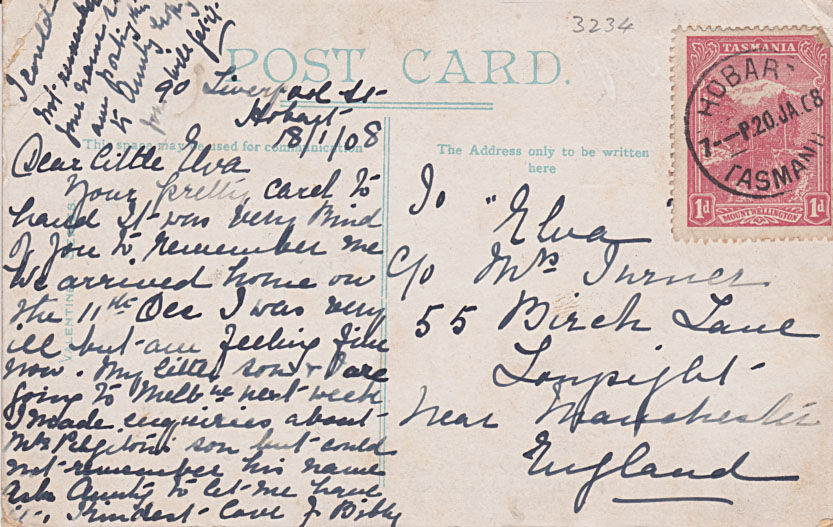 3234
POST CARD.
TASMANIA
HOBAR
7 - P20.JA.08
TASMANI
1d MOUNT WELLINGTON 1d
This space may be used for communication
The Address only to be written
here
VALENTINE
90 Liverpool St
Hobart
18/1/08
Dear little Elva
Your pretty card to
hand It was very kind
of you to remember me
We arrived home on
the 11th Dec I was very
ill but am feeling fine
now. My little son & I are
going to Melbne next week
I made enquiries about
Mrs son but could
not remember his name
Ask Aunty to let me have
it. Kindest Love J Bibby
I could
not remember
your name so
am posting this
to Aunty
To "Elva"
C/o Mrs Turner
55 Birch Lane
Longsight
Near Manchester
England